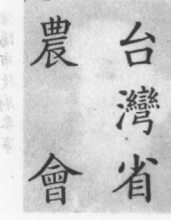 台灣省
農會